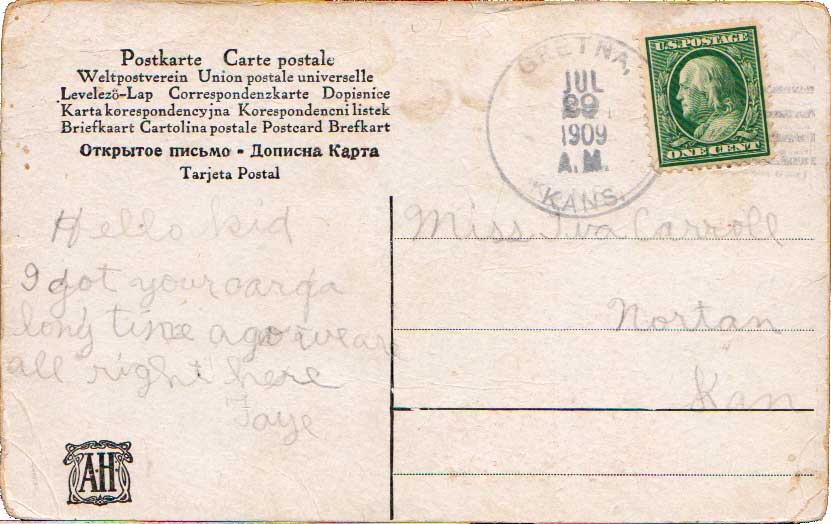 Postkarte Carte postale
Weltpostverein Union postale universelle
Levelező-Lap Correspondenzkarte Dopisnice
Karta korespondencyjna Korespondencni listek
Briefkaart Cartolina postale Postcard Brefkart
Открытое письмо - Дописна Карта
Tarjeta Postal
GRETNA,
JUL
29
1909
A.M.
KANS.
U.S. POSTAGE
ONE CENT
Hello kid
I got your card a
long time ago we are
all right here
Faye
Miss Iva Carroll
Nortan
Kan
AH